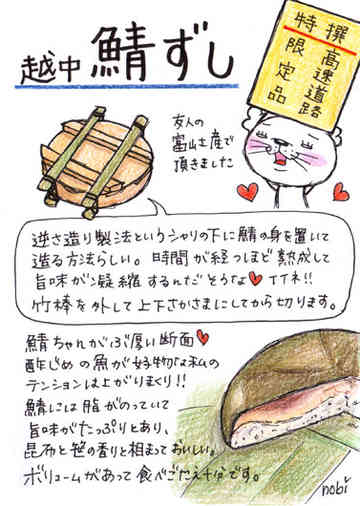 越中 鯖ずし
特撰
高速道路
限定品
友人の
富山土産で
頂きました
逆さ造り製法というシャリの下に鯖の身を置いて
造る方法らしい。時間が経つほど熟成して
旨味が凝縮するんだそうな♥イイネ!!
竹棒を外して上下さかさまにしてから切ります。
鯖ちゃんがぶ厚い断面♥
酢じめの魚が好物な私の
テンションは上がりまくり!!
鯖には脂がのっていて
旨味がたっぷりとあり、
昆布と笹の香りと相まっておいしい。
ボリュームがあって食べごたえ十分です。
nobi